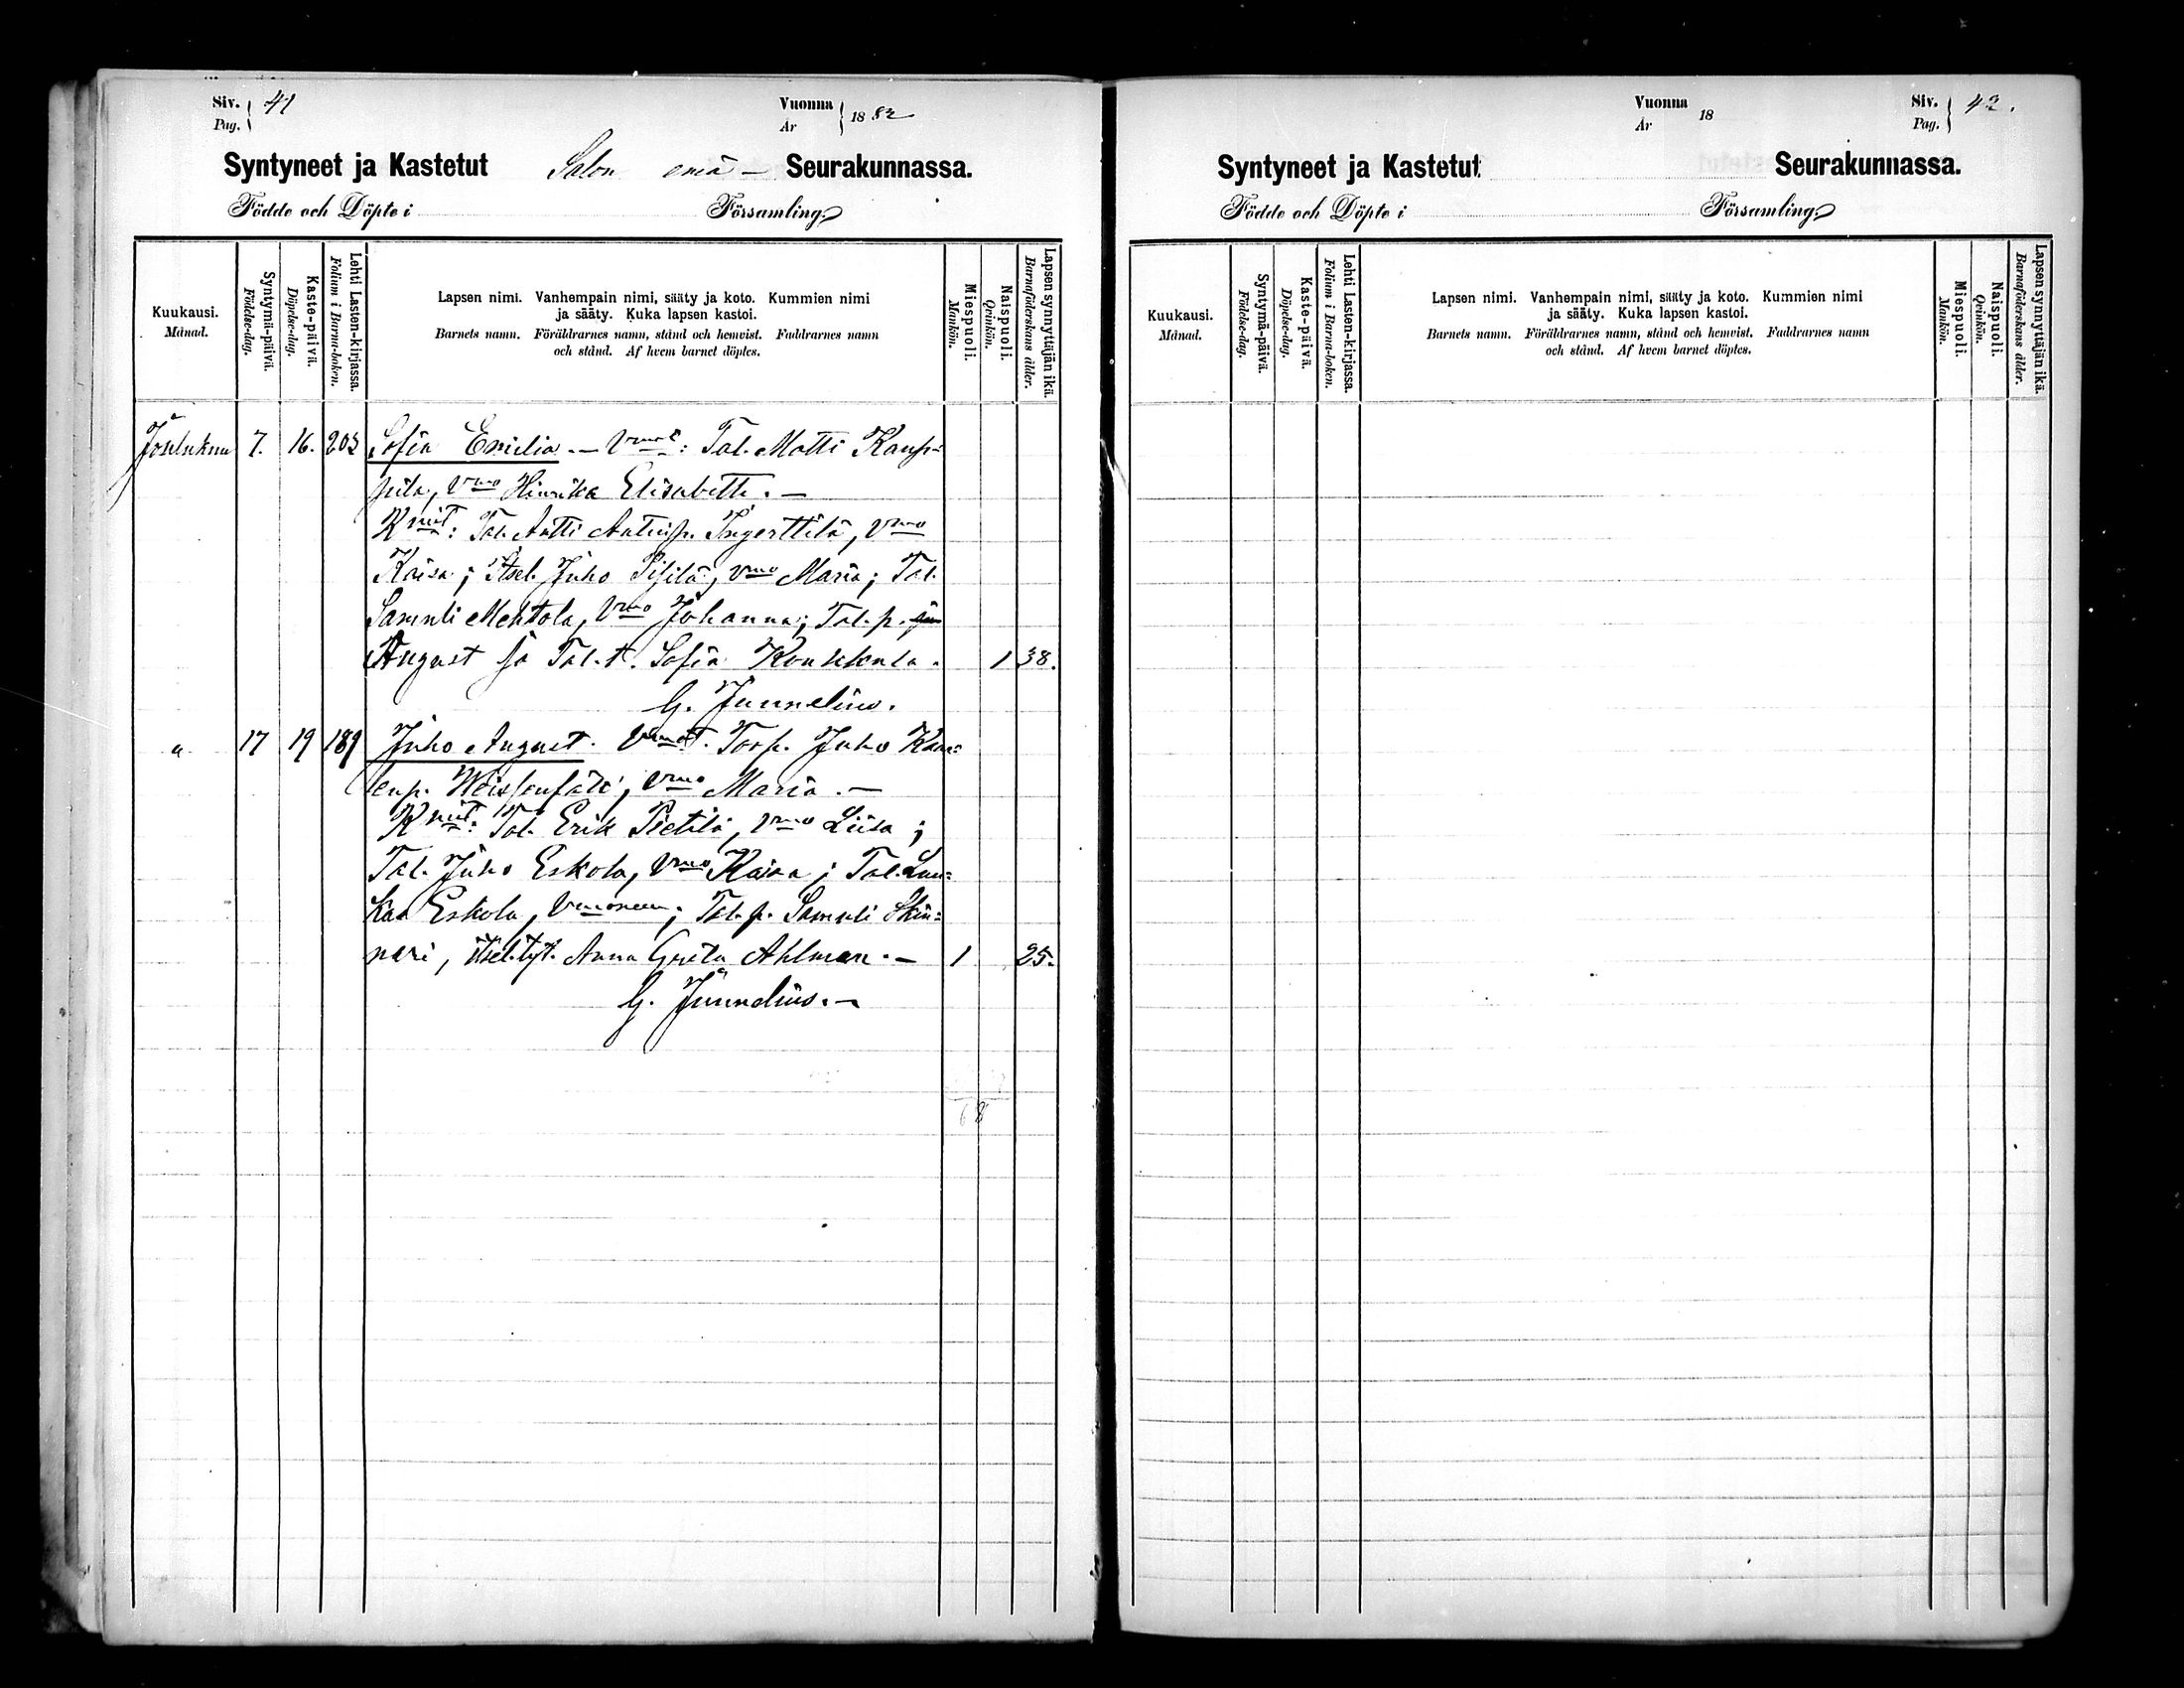 Siv. Pag. 41
Vuonna År 1882
Syntyneet ja Kastetut Salon emä- Seurakunnassa.
Födde och Döpte i Församling
Kuukausi. Månad.
Syntymä-päivä. Födelse-dag.
Kaste-päivä. Döpelse-dag.
Lehti Lasten-kirjassa. Folium i Barna-boken.
Lapsen nimi. Vanhempain nimi, sääty ja koto. Kummien nimi
ja sääty. Kuka lapsen kastoi.
Barnets namn. Föräldrarnes namn, stånd och hemvist. Faddrarnes namn
och stånd. Af hvem barnet döptes.
Miespuoli. Mankön.
Naispuoli. Qvinkön.
Lapsen synnyttäjän ikä. Barnaföderskans ålder.
Joulukuu 7. 16. 203 Sofia Emilia. — Vmat: Tal. Matti Kaup=
pila, Vmo Hinrika Elisabetti. —
Kmit: Tal. Antti Antinp. Ingerttilä, Vmo
Kaisa; Itsel. Juho Pihilä, vmo Maria; Tal.
Samuli Mehtola, Vmo Johanna; Tal. p.
August ja Tal. t. Sofia 1 38.
G. Junnelius.
" 17 19 189 Juho August. Vmat. Torp. Juho
Vmo Maria. —
Kmit: Tal. Erik Pietilä, vmo Liisa;
Tal. Juho Eskola, Vmo Kaisa; Tal. Luu=
kas Eskola, Vmoneen; Tal. p. Samuli Skin=
nari, itsel. tyt. Anna Greta Ahlman. — 1 25.
G. Junnelius. —
6 8
Vuonna År 18
Siv. Pag. 42.
Syntyneet ja Kastetut Seurakunnassa.
Födde och Döpte i Församling
Kuukausi. Månad.
Syntymä-päivä. Födelse-dag.
Kaste-päivä. Döpelse-dag.
Lehti Lasten-kirjassa. Folium i Barna-boken.
Lapsen nimi. Vanhempain nimi, sääty ja koto. Kummien nimi
ja sääty. Kuka lapsen kastoi.
Barnets namn. Föräldrarnes namn, stånd och hemvist. Faddrarnes namn
och stånd. Af hvem barnet döptes.
Miespuoli. Mankön.
Naispuoli. Qvinkön.
Lapsen synnyttäjän ikä. Barnaföderskans ålder.